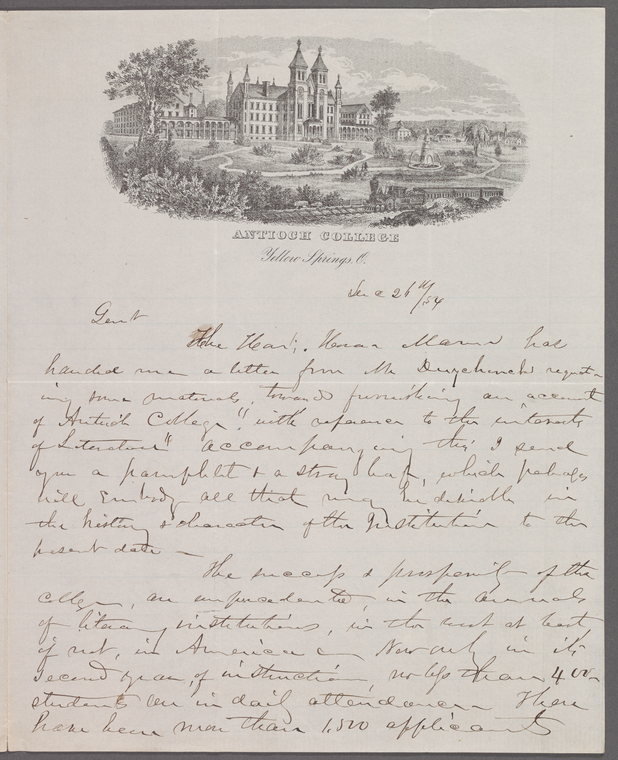 ANTIOCH COLLEGE
Yellow Springs, O.
26th /54
Gent
The Hon. Horace Mann has
handed me a letter from Mr Duyckinck's request-
ing some materials, towards furnishing an account
of Antioch College "with reference to the interests
of Literature" accompanying this I send
you a pamphlet & a stray leaf, which perhaps
will Embody all that may be desirable in
the history & character of the Institution to the
present date —
The success & prosperity of the
college, are unprecedented, in the annals
of literary institutions, in the west at least
if not, in America — Now only in its
second year, of instruction no less than 400
students are in daily attendance There
have been more than 1,500 applicants